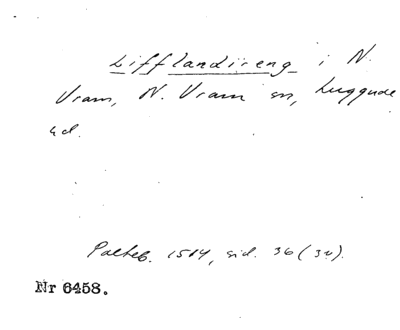 Lifflandireng i N.
Vram, N. Vram sn, Luggude
hd.
Palteb. 1514, sid. 36 (30).
Nr 6458.